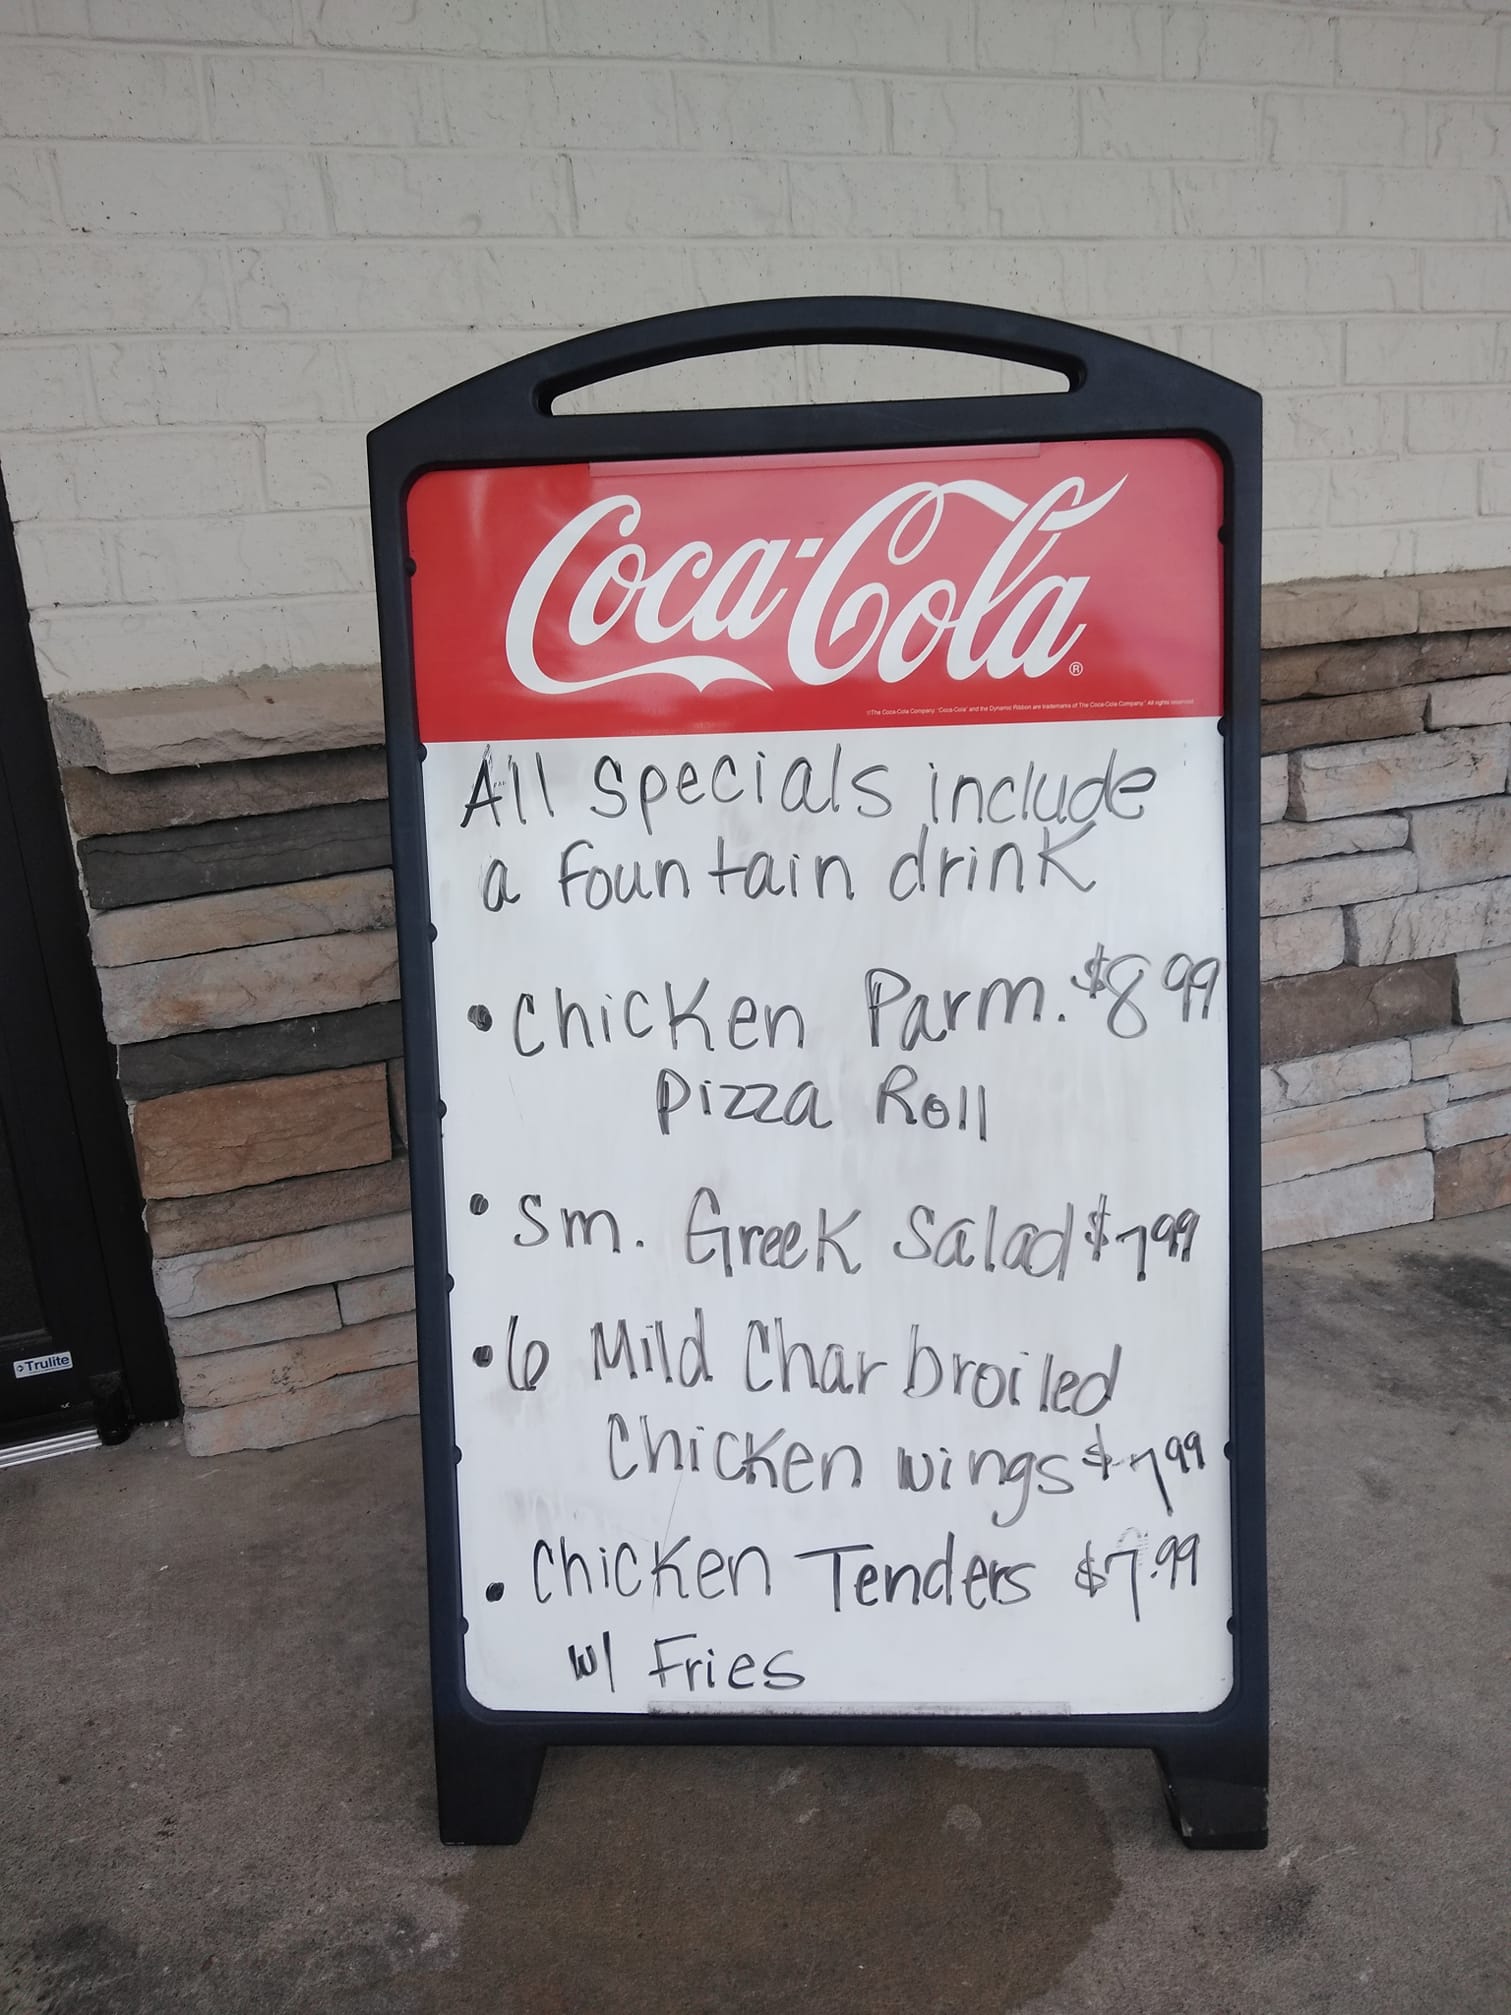 Coca-Cola®
©The Coca-Cola Company. "Coca-Cola" and the Dynamic Ribbon are trademarks of The Coca-Cola Company. All rights reserved.
All specials include
a fountain drink
• Chicken Parm. $8 99
Pizza Roll
• Sm. Greek Salad $7 99
• 6 Mild Char broiled
Chicken wings $7 99
• Chicken Tenders $7.99
w/ Fries
Trulite